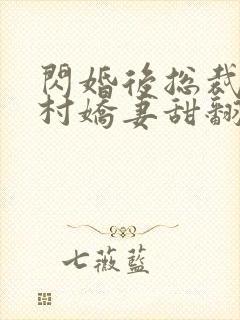 閃婚後總裁
村嬌妻甜翻
七薇藍